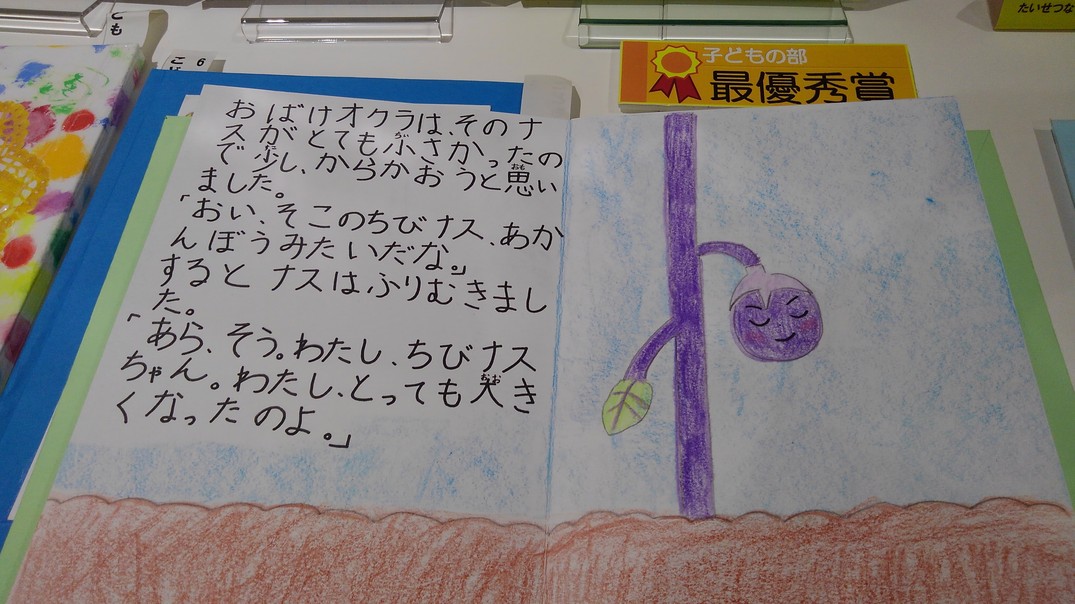 おばけオクラは、そのナ
スがとても小さかったの
で少し、からかおうと思い
ました。
「おい、そこのちびナス、あか
んぼうみたいだな。」
するとナスは、ふりむきまし
た。
「あら、そう。わたし、ちびナス
ちゃん。わたし、とっても大き
くなったのよ。」
子どもの部
最優秀賞
たいせつな